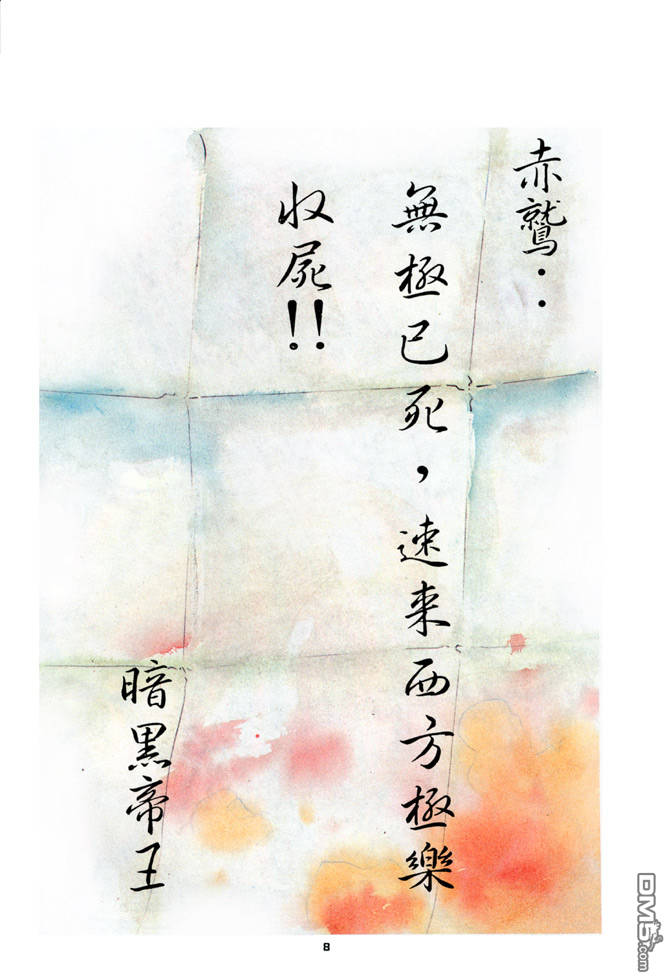 赤鷲：
無極已死，速来西方極樂
收屍！！
暗黒帝王
8
DM5.com
DM5
.com